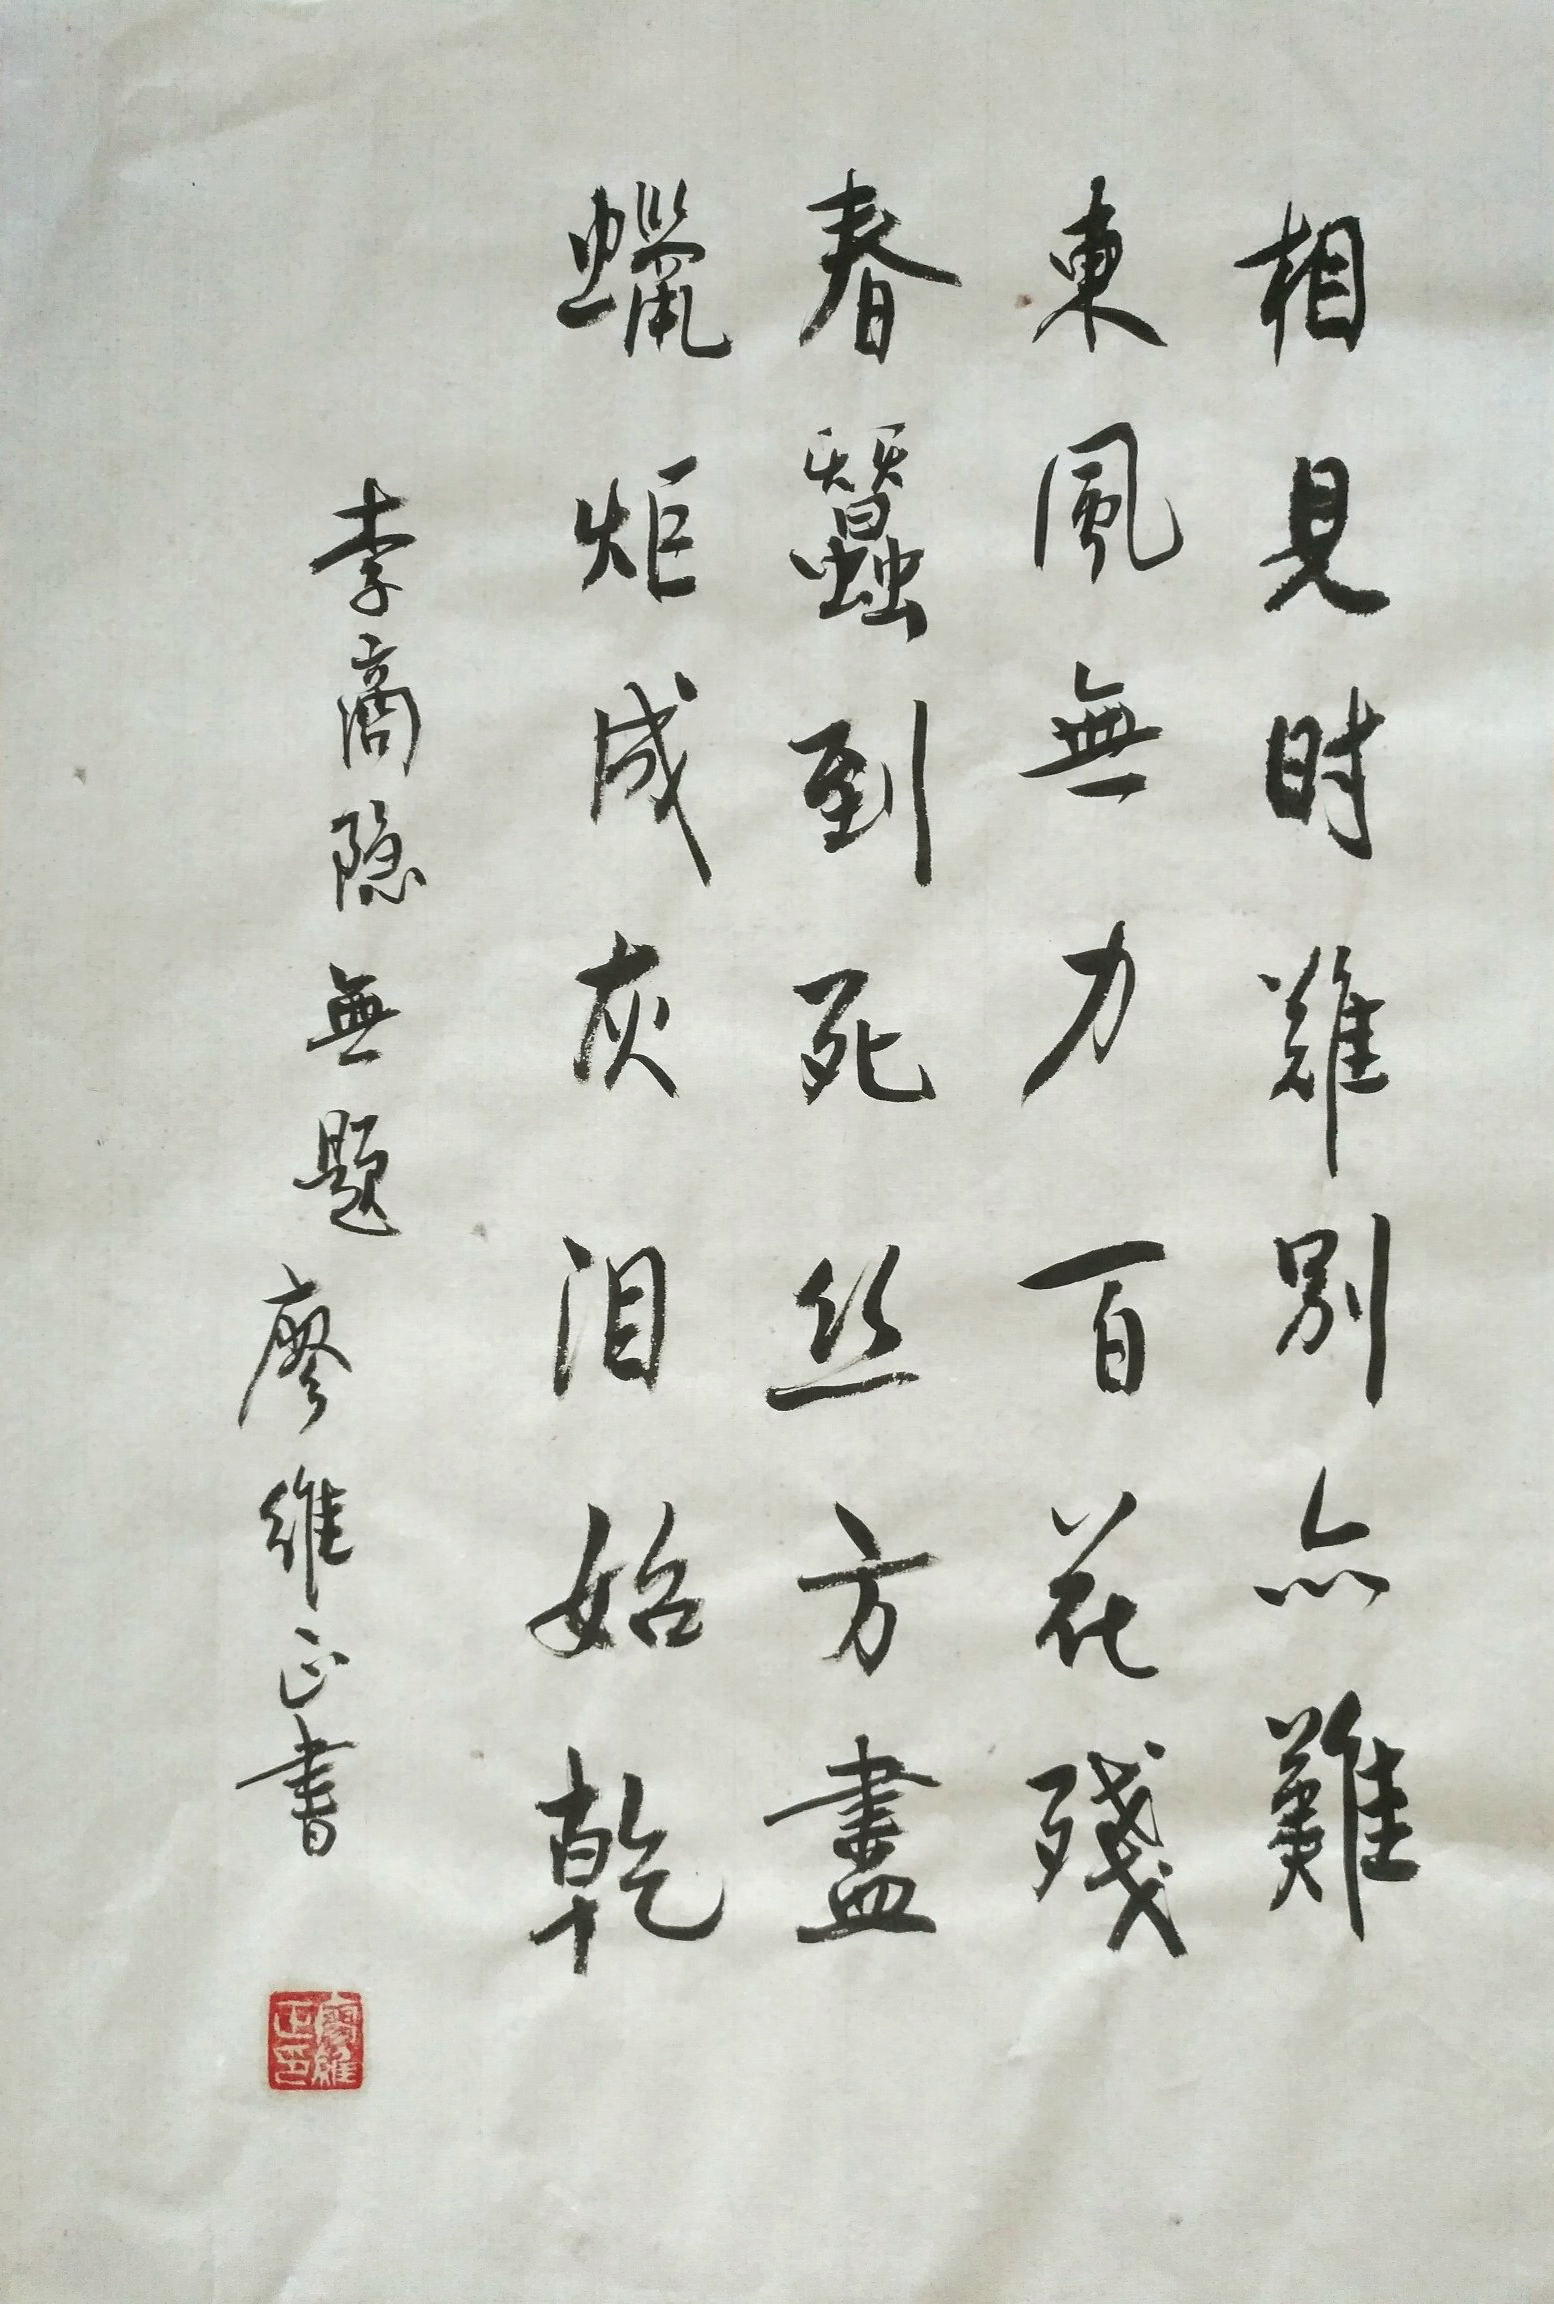 相見时難別亦難
東風無力百花殘
春蠶到死丝方盡
蠟炬成灰泪始乾
李商隐無题
廖維正書
廖維正印